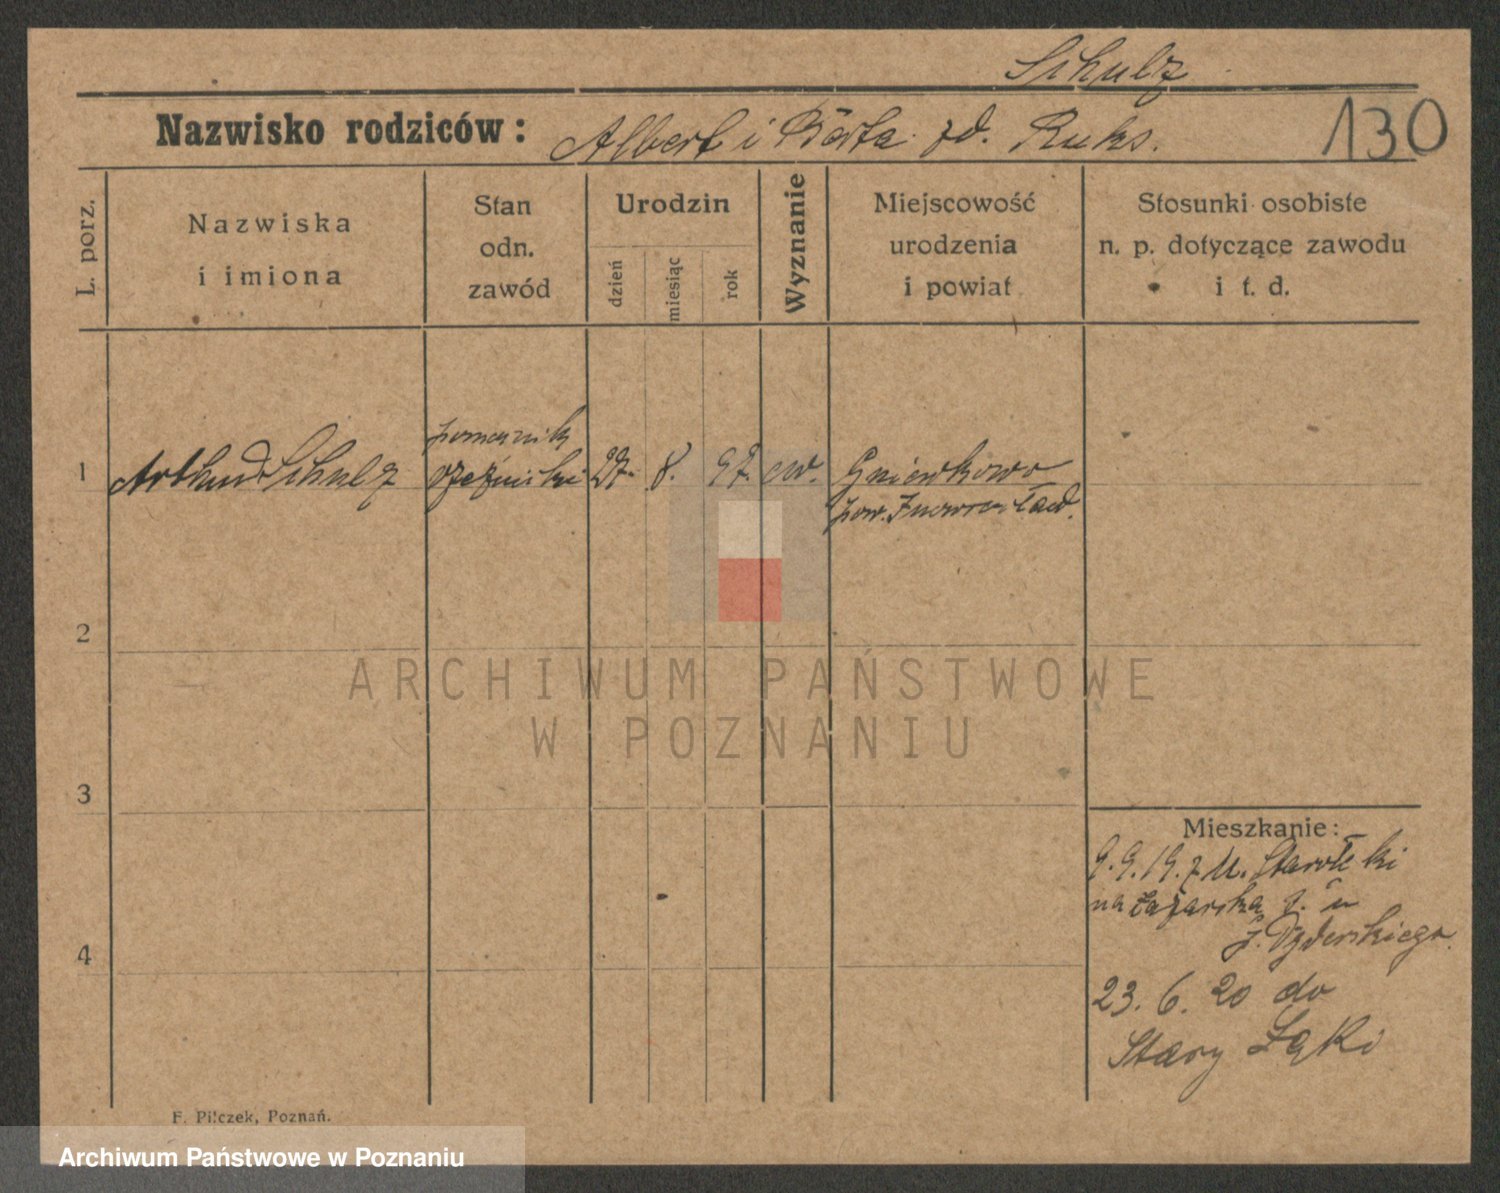 Schulz
Nazwisko rodziców: Albert i Berta zd. Ruks.
130
L. porz.
Nazwiska
i imiona
Stan
odn.
zawód
Urodzin
dzień
miesiąc
rok
Wyznanie
Miejscowość
urodzenia
i powiat
Stosunki osobiste
n. p. dotyczące zawodu
i t. d.
1
Arthur Schulz
pomocnik
rzeźnicki
27. 8. 97. ew.
Gniewkowo
pow. Inowrocław.
2
ARCHIWUM PAŃSTWOWE
W POZNANIU
3
Mieszkanie:
9.9.19. z
na Łazarska
23. 6. 20 do
Stary Łąki
4
F. Pilczek, Poznań.
Archiwum Państwowe w Poznaniu